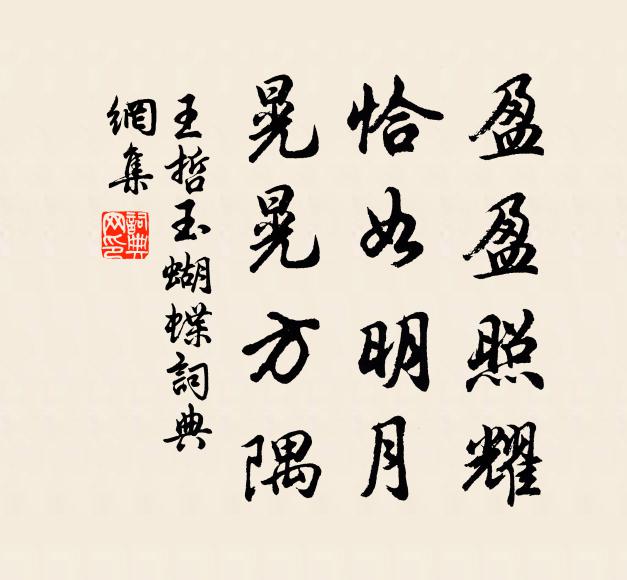 盈盈照耀
恰如明月
晃晃方隅
王哲玉蝴蝶詞典
網集
詞典
网印